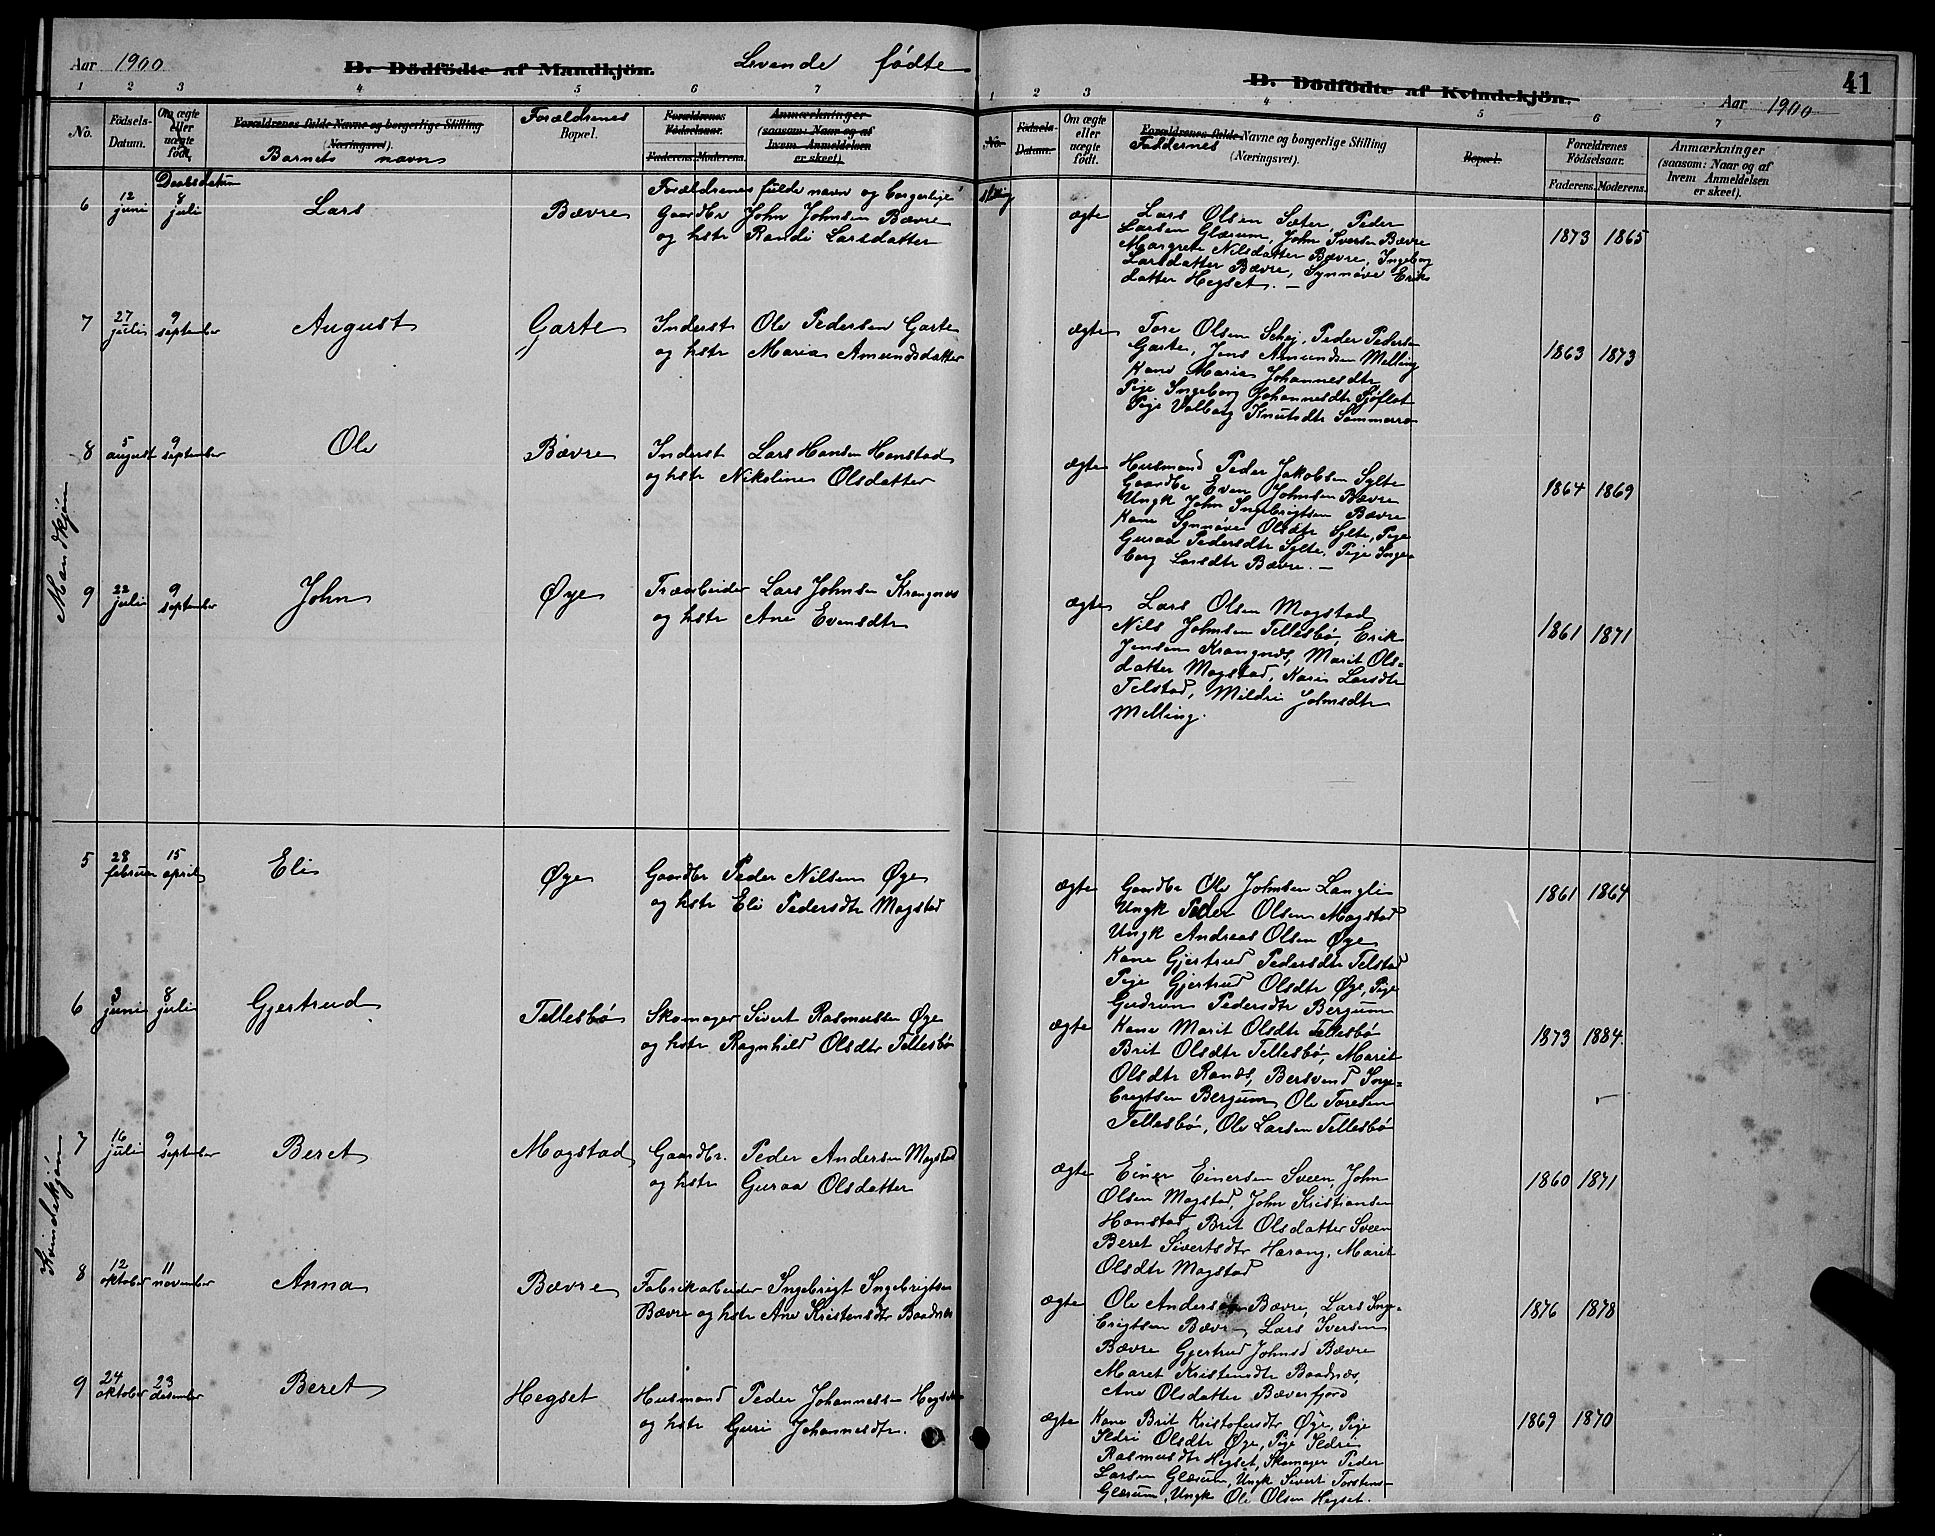 Aar 1900
D. Dödfödte af Mandkjön.
Levende fødte
1 2 3 4 5 6 7
No.
Födsels-Datum.
Om ægte eller uægte födt.
Daabsdatum
Forældrenes fulde Navne og borgerlige Stilling
(Næringsvei).
Barnets navn
Forældrenes
Bopæl.
Forældrenes Födselsaar.
Faderens. Moderens.
Anmærkninger
(saasom: Naar og af hvem Anmeldelsen er skeet).
Forældrenes fulde navn og borgerlige
Mandkjøn
6 12 juni 8 juli Lars Bævre Gaardbr John Johnsen Bævre
og hstr Randi Larsdatter
7 27 juli 9 september August Garte Inderst Ole Pedersen Garte
og hstr Maria Amundsdatter
8 5 august 9 september Ole Bævre Inderst Lars Hansen Honstad
og hstr Nikoline Olsdatter
9 22 juli 9 september John Øye Træarbeider Lars Johnsen Krangnæs
og hstr Ane Evensdtr
Kvindekjøn
5 28 februar 15 april Eli Øye Gaardbr Peder Nilsen Øye
og hstr Eli Pedersdtr Mogstad
6 3 juni 8 juli Gjertrud Tellesbø Skomager Sivert Rasmussen Øye
og hstr Ragnhild Olsdtr Tellesbø
7 16 juli 9 september Beret Mogstad Gaardbr. Peder Andersen Mogstad
og hstr Guraa Olsdatter
8 12 oktober 11 november Anna Bævre Fabrikarbeider Ingebrigt Ingebrigtsen
Bævre og hstr Ane Kristensdtr Baadnæs
9 24 oktober 23 desember Beret Hegset Husmand Peder Johannessen Hegset
og hstr Guri Johannesdtr.
D. Dödfödte af Kvindekjön.
41
Aar 1900
1 2 3 4 5 6 7
No.
Födsels-Datum.
Om ægte eller uægte födt.
Forældrenes fulde Navne og borgerlige Stilling
Faddernes
(Næringsvei).
Bopæl.
Forældrenes Födselsaar.
Faderens. Moderens.
Anmærkninger
(saasom: Naar og af hvem Anmeldelsen er skeet).
ægte Lars Olsen Sæter, Peder 1873 1865
Larsen Glærum, John Iversen Bævre
Margrete Nilsdatter Bævre, Ingeborg
Larsdatter Bævre, Synnøve Eriks
datter Hegset. —
ægte Tore Olsen Schej, Peder Pedersen 1863 1873
Garte, Jens Amundsen Melling
Kone Maria Johannesdtr
Pige Ingeborg Johannesdtr Sjøflot
Pige Valborg Knutsdtr Sommerro
ægte Husmand Peder Jakobsen Sylte 1864 1869
Gaardbr Even Johnsen Bævre
Ungk John Ingebrigtsen Bævre
Kone Synnøve Olsdtr Sylte, Pige
Guraa Pedersdtr Sylte, Pige Inge
borg Larsdtr Bævre. —
ægte Lars Olsen Mogstad 1861 1871
Nils Johnsen Tellesbø, Erik
Jensen Krangnæs, Marit Ols=
datter Mogstad, Kari Larsdtr
Telstad, Mildri Johnsdtr
Melling.
ægte Gaardbr Ole Johnsen Langli 1861 1864
Ungk Peder Olsen Mogstad
Ungk Andreas Olsen Øye
Kone Gjertrud Pedersdtr Telstad
Pige Gjertrud Olsdtr Øye, Pige
Gudrun Pedersdtr Bergum
ægte Kone Marit Olsdtr Tellesbø 1873 1884.
Brit Olsdtr Tellesbø, Marit
Olsdtr Ranæs, Bersvend Inge=
brigtsen Bergum, Ole Toresen
Tellesbø, Ole Larsen Tellesbø
ægte Einer Einersen Sveen, John 1860 1871
Olsen Mogstad, John Kristiansen
Honstad, Brit Olsdatter Sveen
Beret Sivertsdtr Harang, Marit
Olsdtr Mogstad
ægte Ole Andersen Bævre, Lars Inge= 1876 1878
brigtsen Bævre, Lars Iversen
Bævre Gjertrud Johnsd Bævre
Maret Kristensdtr Baadnæs,
Ane Olsdatter Bæverfjord
ægte Kone Brit Kristofersdtr Øye, Pige 1869 1870
Ildri Olsdtr Øye, Pige Ildri
Rasmusdtr Hegset, Skomager Peder
Larsen Glærum, Ungk Sivert Torstens=
Glærum, Ungk Ole Olsen Hegset.